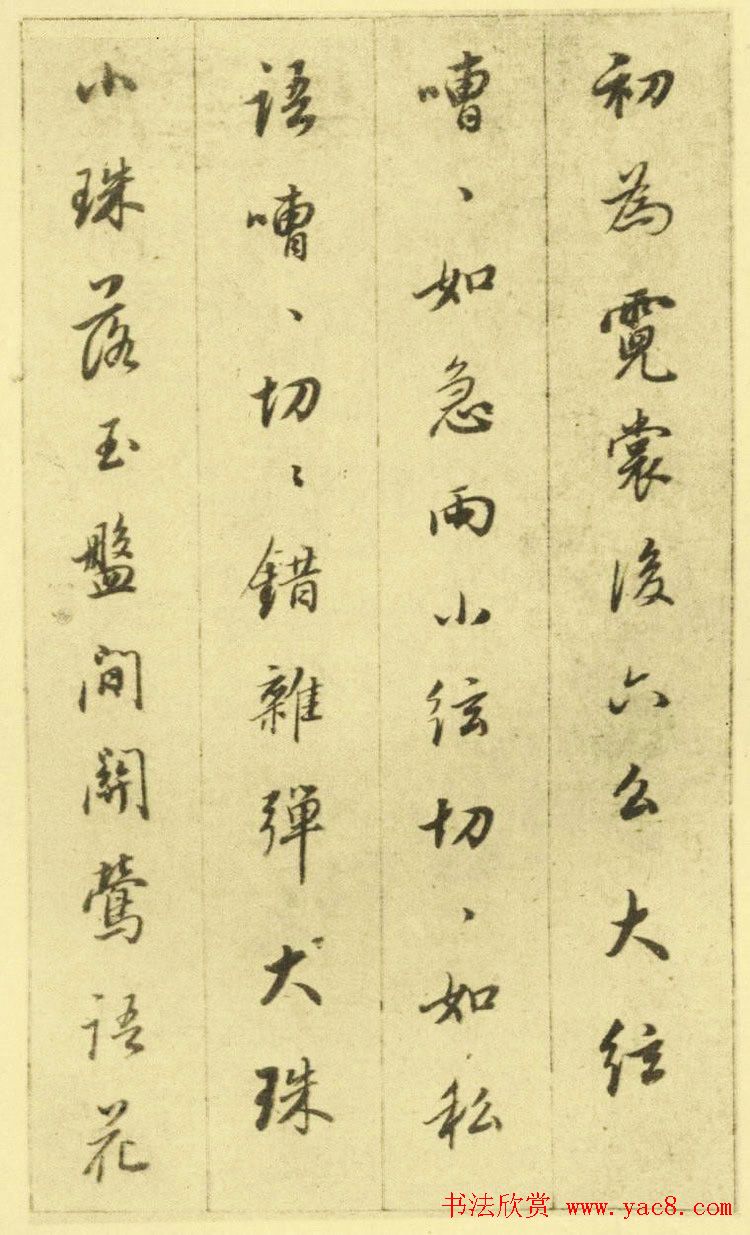 初為霓裳後六幺大絃
嘈、如急雨小絃切、如私
語嘈、切〻錯雜彈大珠
小珠落玉盤間關鶯語花
书法欣赏 www.yac8.com